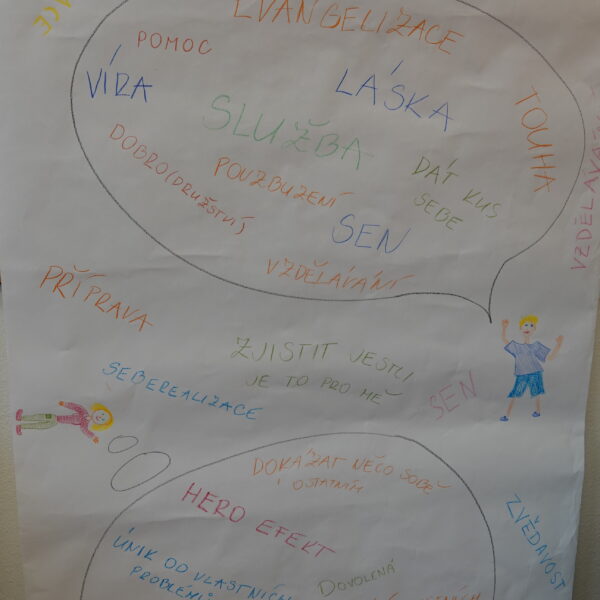 EVANGELIZACE
POMOC
VÍRA
LÁSKA
TOUHA
SLUŽBA
DOBRO(DRUŽSTVÍ)
POVZBUZENÍ
DÁT KUS
SEBE
SEN
VZDĚLÁVÁNÍ
PŘÍPRAVA
ZJISTIT JESTLI
JE TO PRO MĚ
SEBEREALIZACE
SEN
DOKÁZAT NĚCO SOBĚ
I OSTATNÍM
HERO EFEKT
ZVĚDAVOST
ÚNIK OD VLASTNÍCH
PROBLÉMŮ
DOVOLENÁ